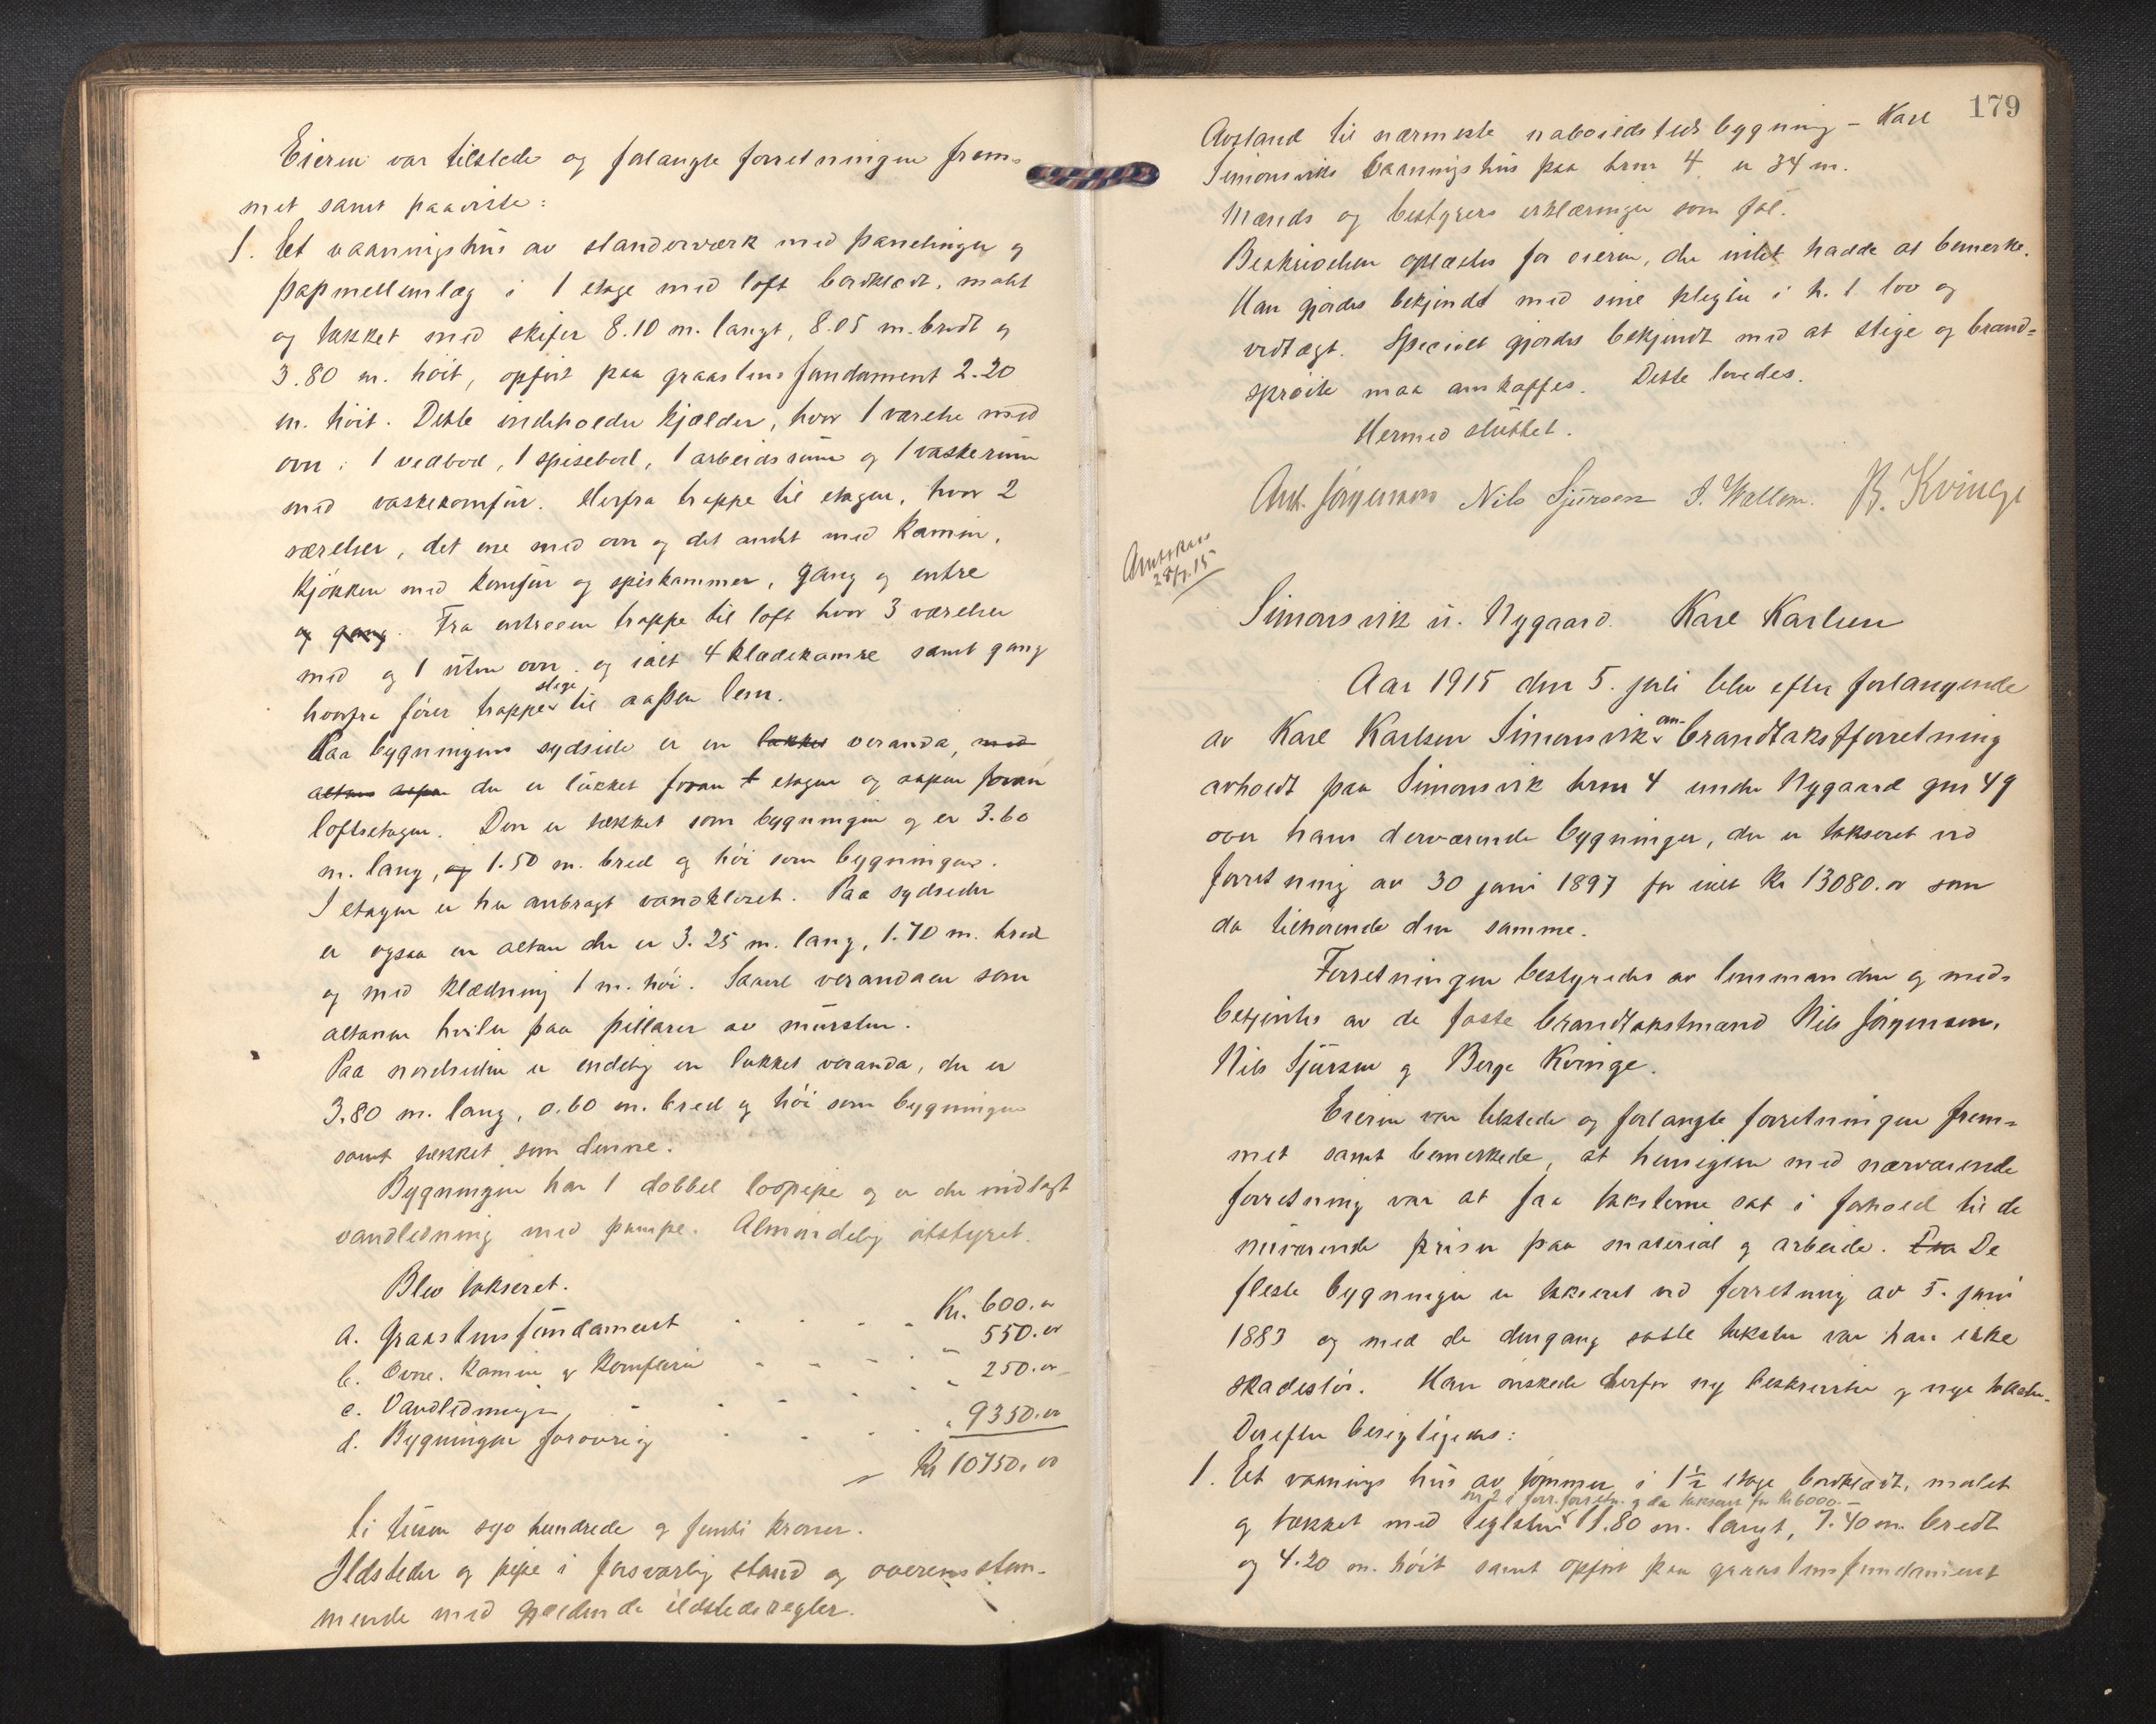 Eieren var tilstede og forlangte forretningen frem-
met samt paaviste:
1. Et vaaningshus av standerværk med panelinger og
papmellemlæg i 1 etage med loft bordklædt, malt
og tækket med skifer 8.10 m. langt, 8.05 m. bredt og
3.80 m. høit, opført paa graastensfundament 2.20
m. høit. Dette indeholder kjælder, hvor 1 værelse med
ovn, 1 vedbod, 1 spisebod, 1 arbeidsrum og 1 vaskerum
med vaskekomfur. Herfra trappe til etagen, hvor 2
værelser, det ene med ovn og det andet med kamin,
kjøkken med komfur og spiskammer, gang og entre
og gang. Fra entreen trappe til loft hvor 3 værelser
med og 1 uten ovn og ialt 4 klædekamre samt gang
hvorfra fører trappe stige til aapen lem.
Paa bygningens sydside er en lukket veranda, med
altan aapen der er lukket foran 1 etagen og aapen foran
loftsetagen. Den er tækket som bygningen og er 3.60
m. lang, og 1.50 m. bred og høi som bygningen.
I etagen er her anbragt vandkloset. Paa sydsiden
er ogsaa en altan der er 3.25 m. lang, 1.70 m. bred
og med klædning 1 m. høi. Saavel verandaen som
altanen hviler paa pillarer av mursten.
Paa nordsiden er endelig en lukket veranda, der er
3.80 m. lang, 0.60 m. bred og høi som bygningen
samt tækket som denne.
Bygningen har 1 dobbel løopipe og er der indlagt
vandledning med pumpe. Almindelig utstyret.
Blev takseret.
a. Graastensfundament - - - - Kr. 600.00
b. Ovne, kamin og komfurer - - - - " 550.00
c. Vandledningen - - - - " 250.00
d. Bygningen forøvrig - - - " 9350.00
Kr 10750.00
ti tusen syv hundrede og femti kroner.
Ildsteder og pipe i forsvarlig stand og overensstem-
mende med gjældende ildstedsregler.
179
Avstand til nærmeste naboildstedsbygning - Karl
Simonsviks vaaningshus paa brnr 4 er 34 m.
Mænds og bestyrers erklæringer som føl.
Beskrivelsen oplæstes for eieren, der intet hadde at bemerke.
Han gjordes bekjendt med sine pligter i h. t. lov og
vedtægt. Specielt gjordes bekjendt med at stige og brand-
sprøite maa anskaffes. Dette lovedes.
Hermed sluttet.
Ant. Jørgensen Nils Sjursen I. Wallem. B. Kvinge
28/7.15
Simonsvik u. Nygaard. Karl Karlsen
Aar 1915 den 5. juli blev efter forlangende
av Karl Karlsen Simonsvik om- brandtakstforretning
avholdt paa Simonsvik brnr 4 under Nygaard gnr 49
over hans derværende bygninger, der er takseret ved
forretning av 30 juni 1897 for ialt kr 13080.00 som
da tilhørende den samme.
Forretningen bestyredes av lensmanden og med-
betjentes av de faste brandtakstmænd Nils Jørgensen,
Nils Sjursen og Berge Kvinge.
Eieren var tilstede og forlangte forretningen frem-
met samt bemerkede, at hensigten med nærværende
forretning var at faa taksterne sat i forhold til de
nuværende priser paa material og arbeide. De
fleste bygninger er takseret ved forretning av 5. juni
1883 og med de dengang satte takster var han ikke
skadesløs. Han ønskede derfor ny beskrivelse og nye takster.
Derefter besigtigedes:
1. Et vaaningshus av tømmer i 1½ etage bordklædt, malet
nr 2 i forr. forretn. og da takseret for kr 6000.-
og tækket med teglsten 11.80 m. langt, 7.40 m. bredt
og 4.20 m. høit samt opført paa graastensfundament